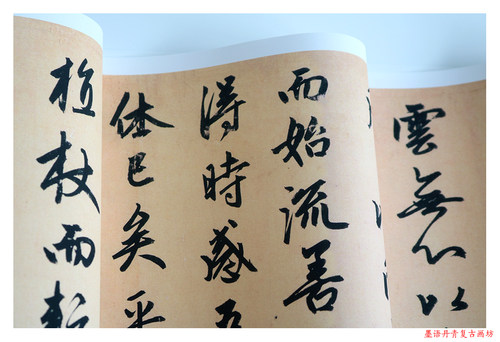 雲無心以
而始流善
得時感吾
休已矣乎
植杖而耘
墨语丹青复古画坊